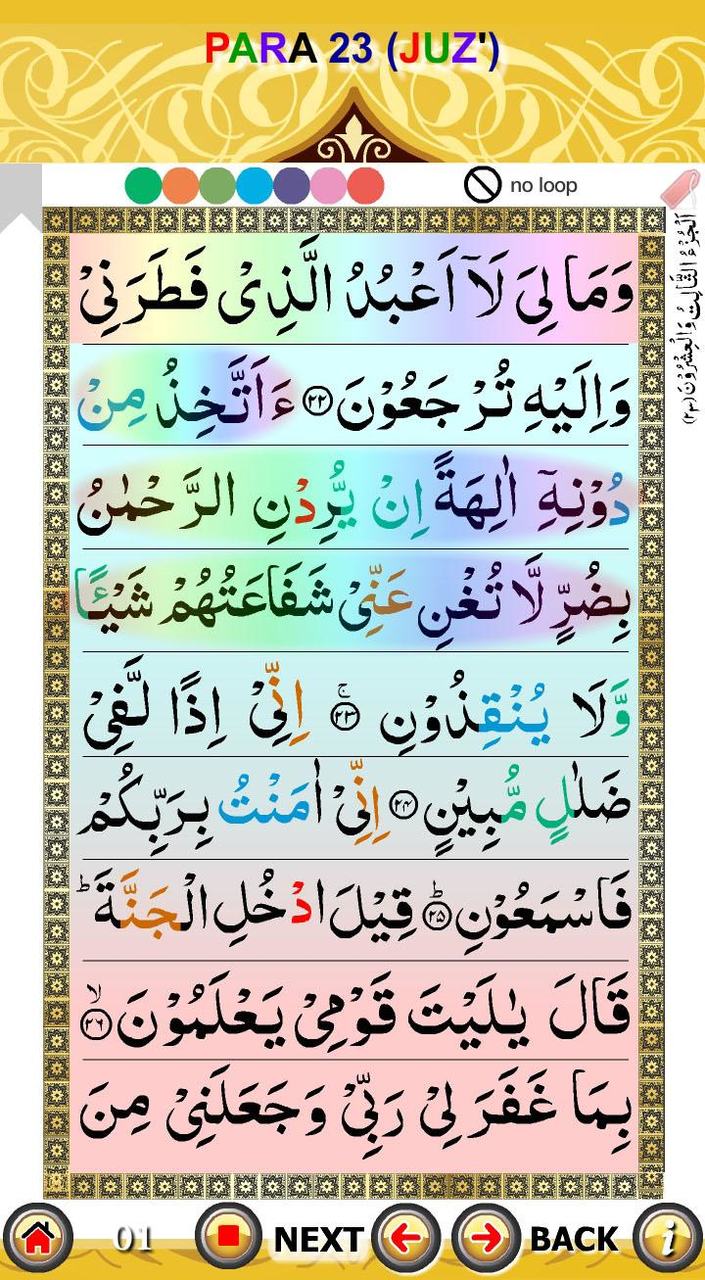 PARA 23 (JUZ')
no loop
اَلْجُزْءُ الثَّالِثُ وَالْعِشْرُوْنَ (٢٣)
وَمَا لِیَ لَاۤ اَعْبُدُ الَّذِیْ فَطَرَنِیْ
وَاِلَیْهِ تُرْجَعُوْنَ ﴿۲۲﴾ ءَاَتَّخِذُ مِنْ
دُوْنِهٖۤ اٰلِهَةً اِنْ یُّرِدْنِ الرَّحْمٰنُ
بِضُرٍّ لَّا تُغْنِ عَنِّیْ شَفَاعَتُهُمْ شَیْـًٔا
وَّلَا یُنْقِذُوْنِ ۚ﴿۲۳﴾ اِنِّیْۤ اِذًا لَّفِیْ
ضَلٰلٍ مُّبِیْنٍ ﴿۲۴﴾ اِنِّیْۤ اٰمَنْتُ بِرَبِّكُمْ
فَاسْمَعُوْنِ ؕ﴿۲۵﴾ قِیْلَ ادْخُلِ الْجَنَّةَ ؕ
قَالَ یٰلَیْتَ قَوْمِیْ یَعْلَمُوْنَ ۙ﴿۲۶﴾
بِمَا غَفَرَ لِیْ رَبِّیْ وَجَعَلَنِیْ مِنَ
01 NEXT BACK i